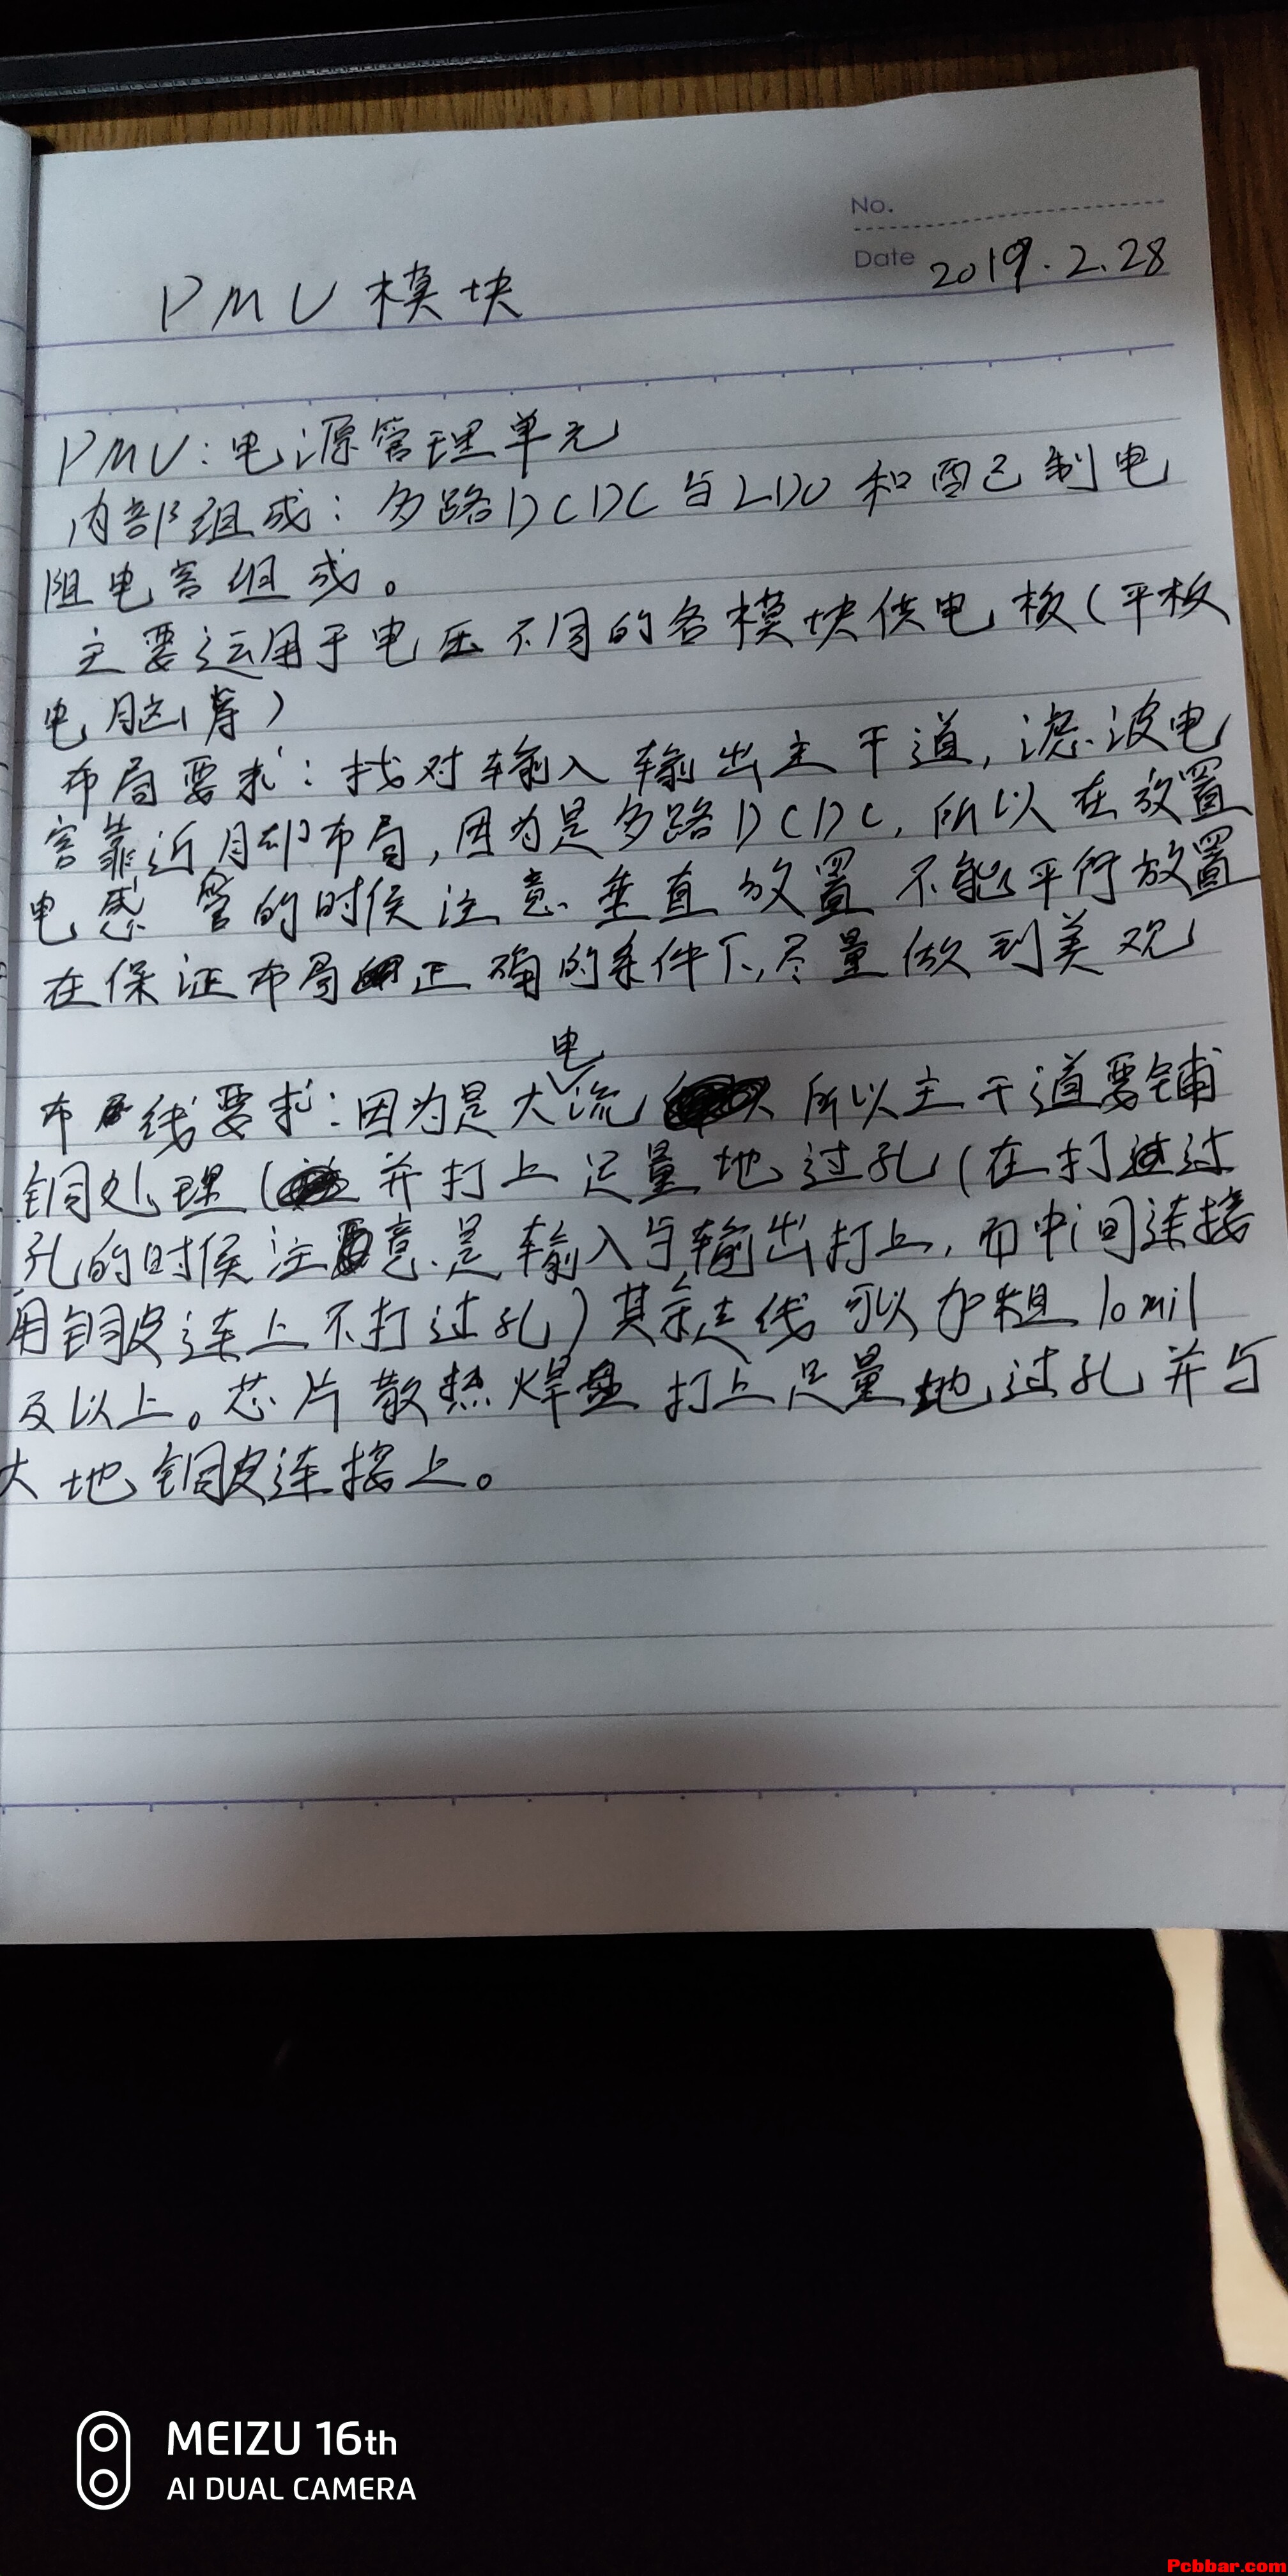 No.
Date 2019.2.28
PMU模块
PMU:电源管理单元
内部组成:多路DCDC与LDO和配制电
阻电容组成。
主要运用于电压不同的各模块供电板(平板
电脑等)
布局要求:找对输入输出主干道,滤波电
容靠近月却布局,因为是多路DCDC,所以在放置
电感 的时候注意垂直放置不能平行放置
在保证布局正确的条件下,尽量做到美观
布线要求:因为是大电流 所以主干道要铺
铜处理(并打上足量地过孔(在打过
孔的时候注意是输入与输出打上,而中间连接
用铜皮连上不打过孔)其余走线可以加粗10mil
及以上。芯片散热焊盘打上足量地过孔并与
大地铜皮连接上。
MEIZU 16th
AI DUAL CAMERA
Pcbbar.com